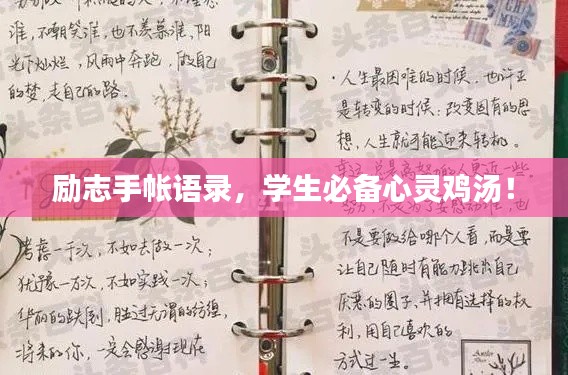 谁,不嘲笑谁,也不羡慕谁,阳
光下灿烂,风雨中奔跑,做自己
的梦,走自己的路。
考虑一千次,不如去做一次;
犹豫一万次,不如实践一次;
华丽的跌倒,胜过无谓的徘徊,
将来的你,一定会感谢现在
励志手帐语录,学生必备心灵鸡汤!
·人生最困难的时候,也许正
是转变的时候:改变固有的思
想,人生就可能迎来转机。
不是要做给哪个人看,而是要
让自己随时有能力跳出自己
厌恶的圈子,并拥有选择的权
利,用自己喜欢的
方式过一生。
头条百科